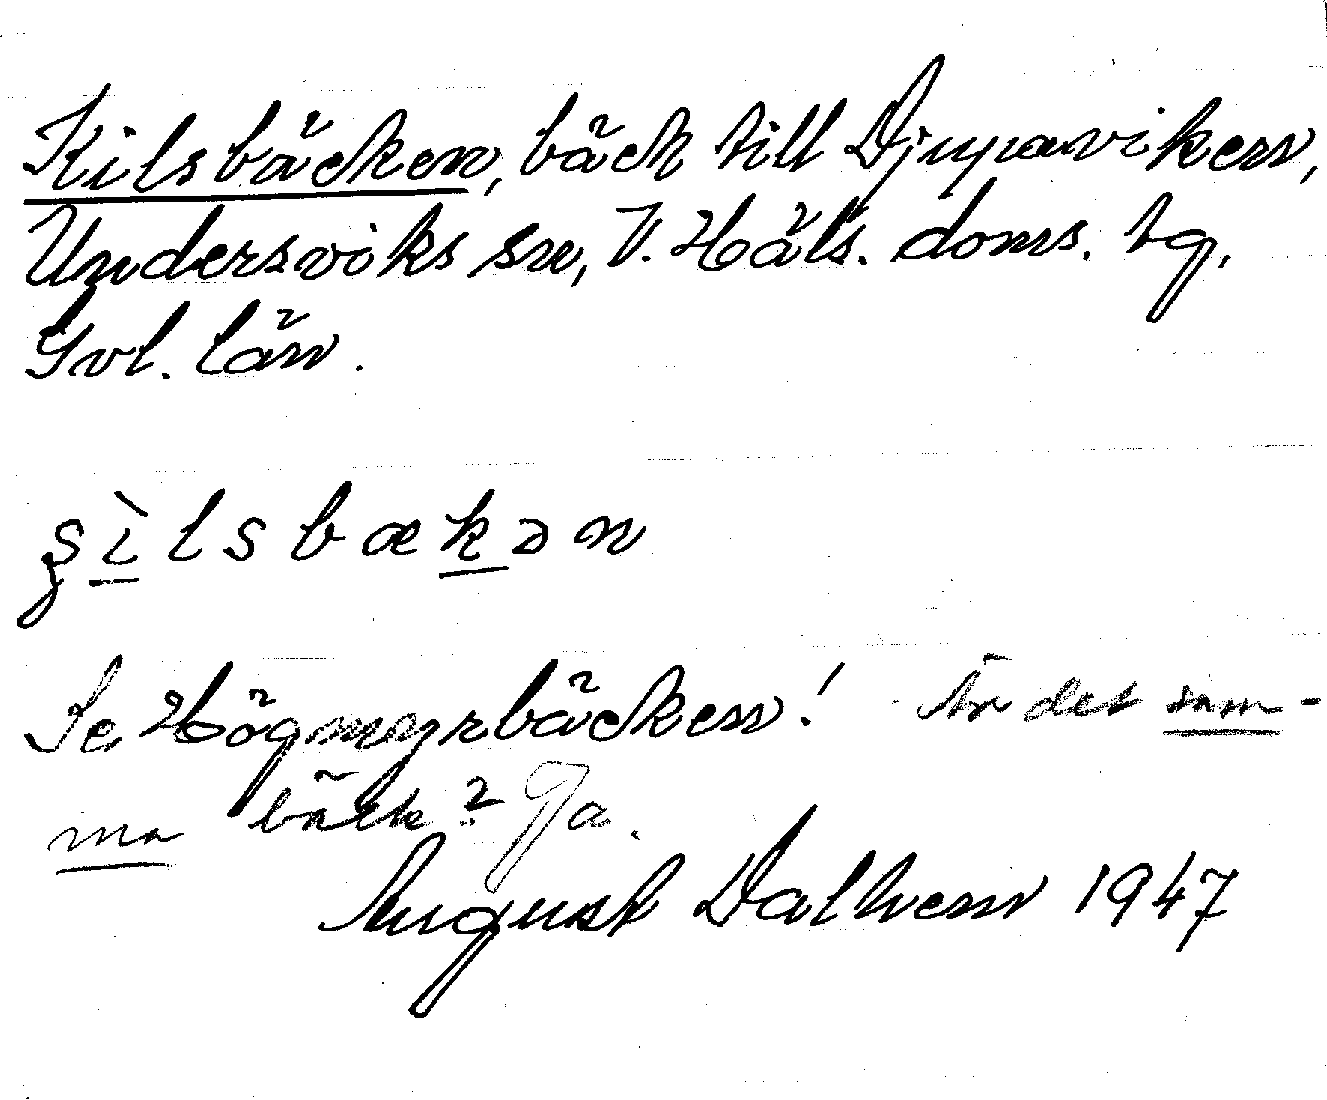 Kilsbäcken, bäck till Djupaviken,
Undersviks sn, V. Häls. doms. tg,
Gvl. län.
ʂìlsbækən
Se Högmyrbäcken! Är det sam-
ma bäck? Ja.
August Dalhem 1947